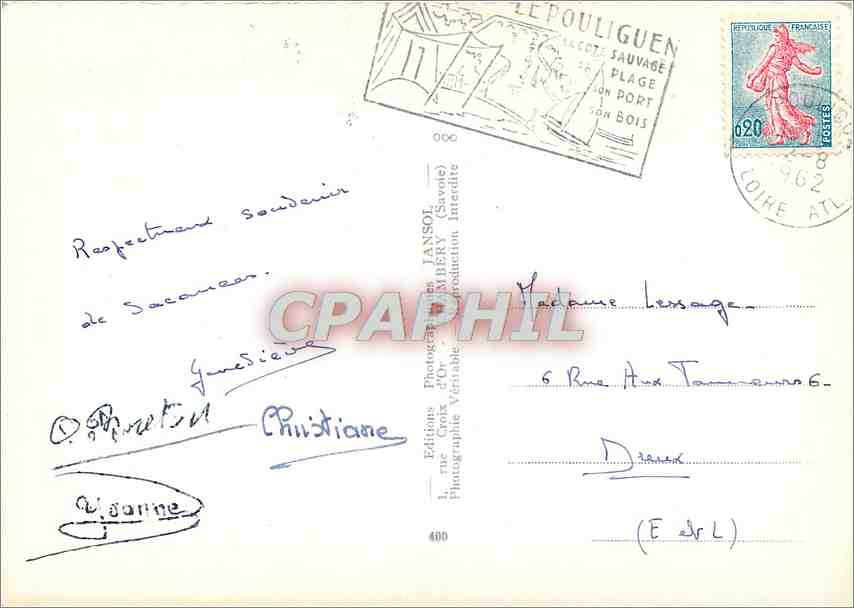 LE POULIGUEN
SA COTE SAUVAGE
SA PLAGE
SON PORT
SON BOIS
REPUBLIQUE FRANÇAISE
0,20
POSTES
-8
1962
LOIRE ATL.
Respectueux souvenir
de vacances.
Geneviève
Christiane
Yvonne
Editions Photographiques JANSOL
1, rue Croix d'Or - CHAMBÉRY (Savoie)
Photographie Véritable - Reproduction Interdite
400
CPAPHIL
Madame Lessage
6 Rue Aux Tanneurs 6-
Dreux
(E et L)